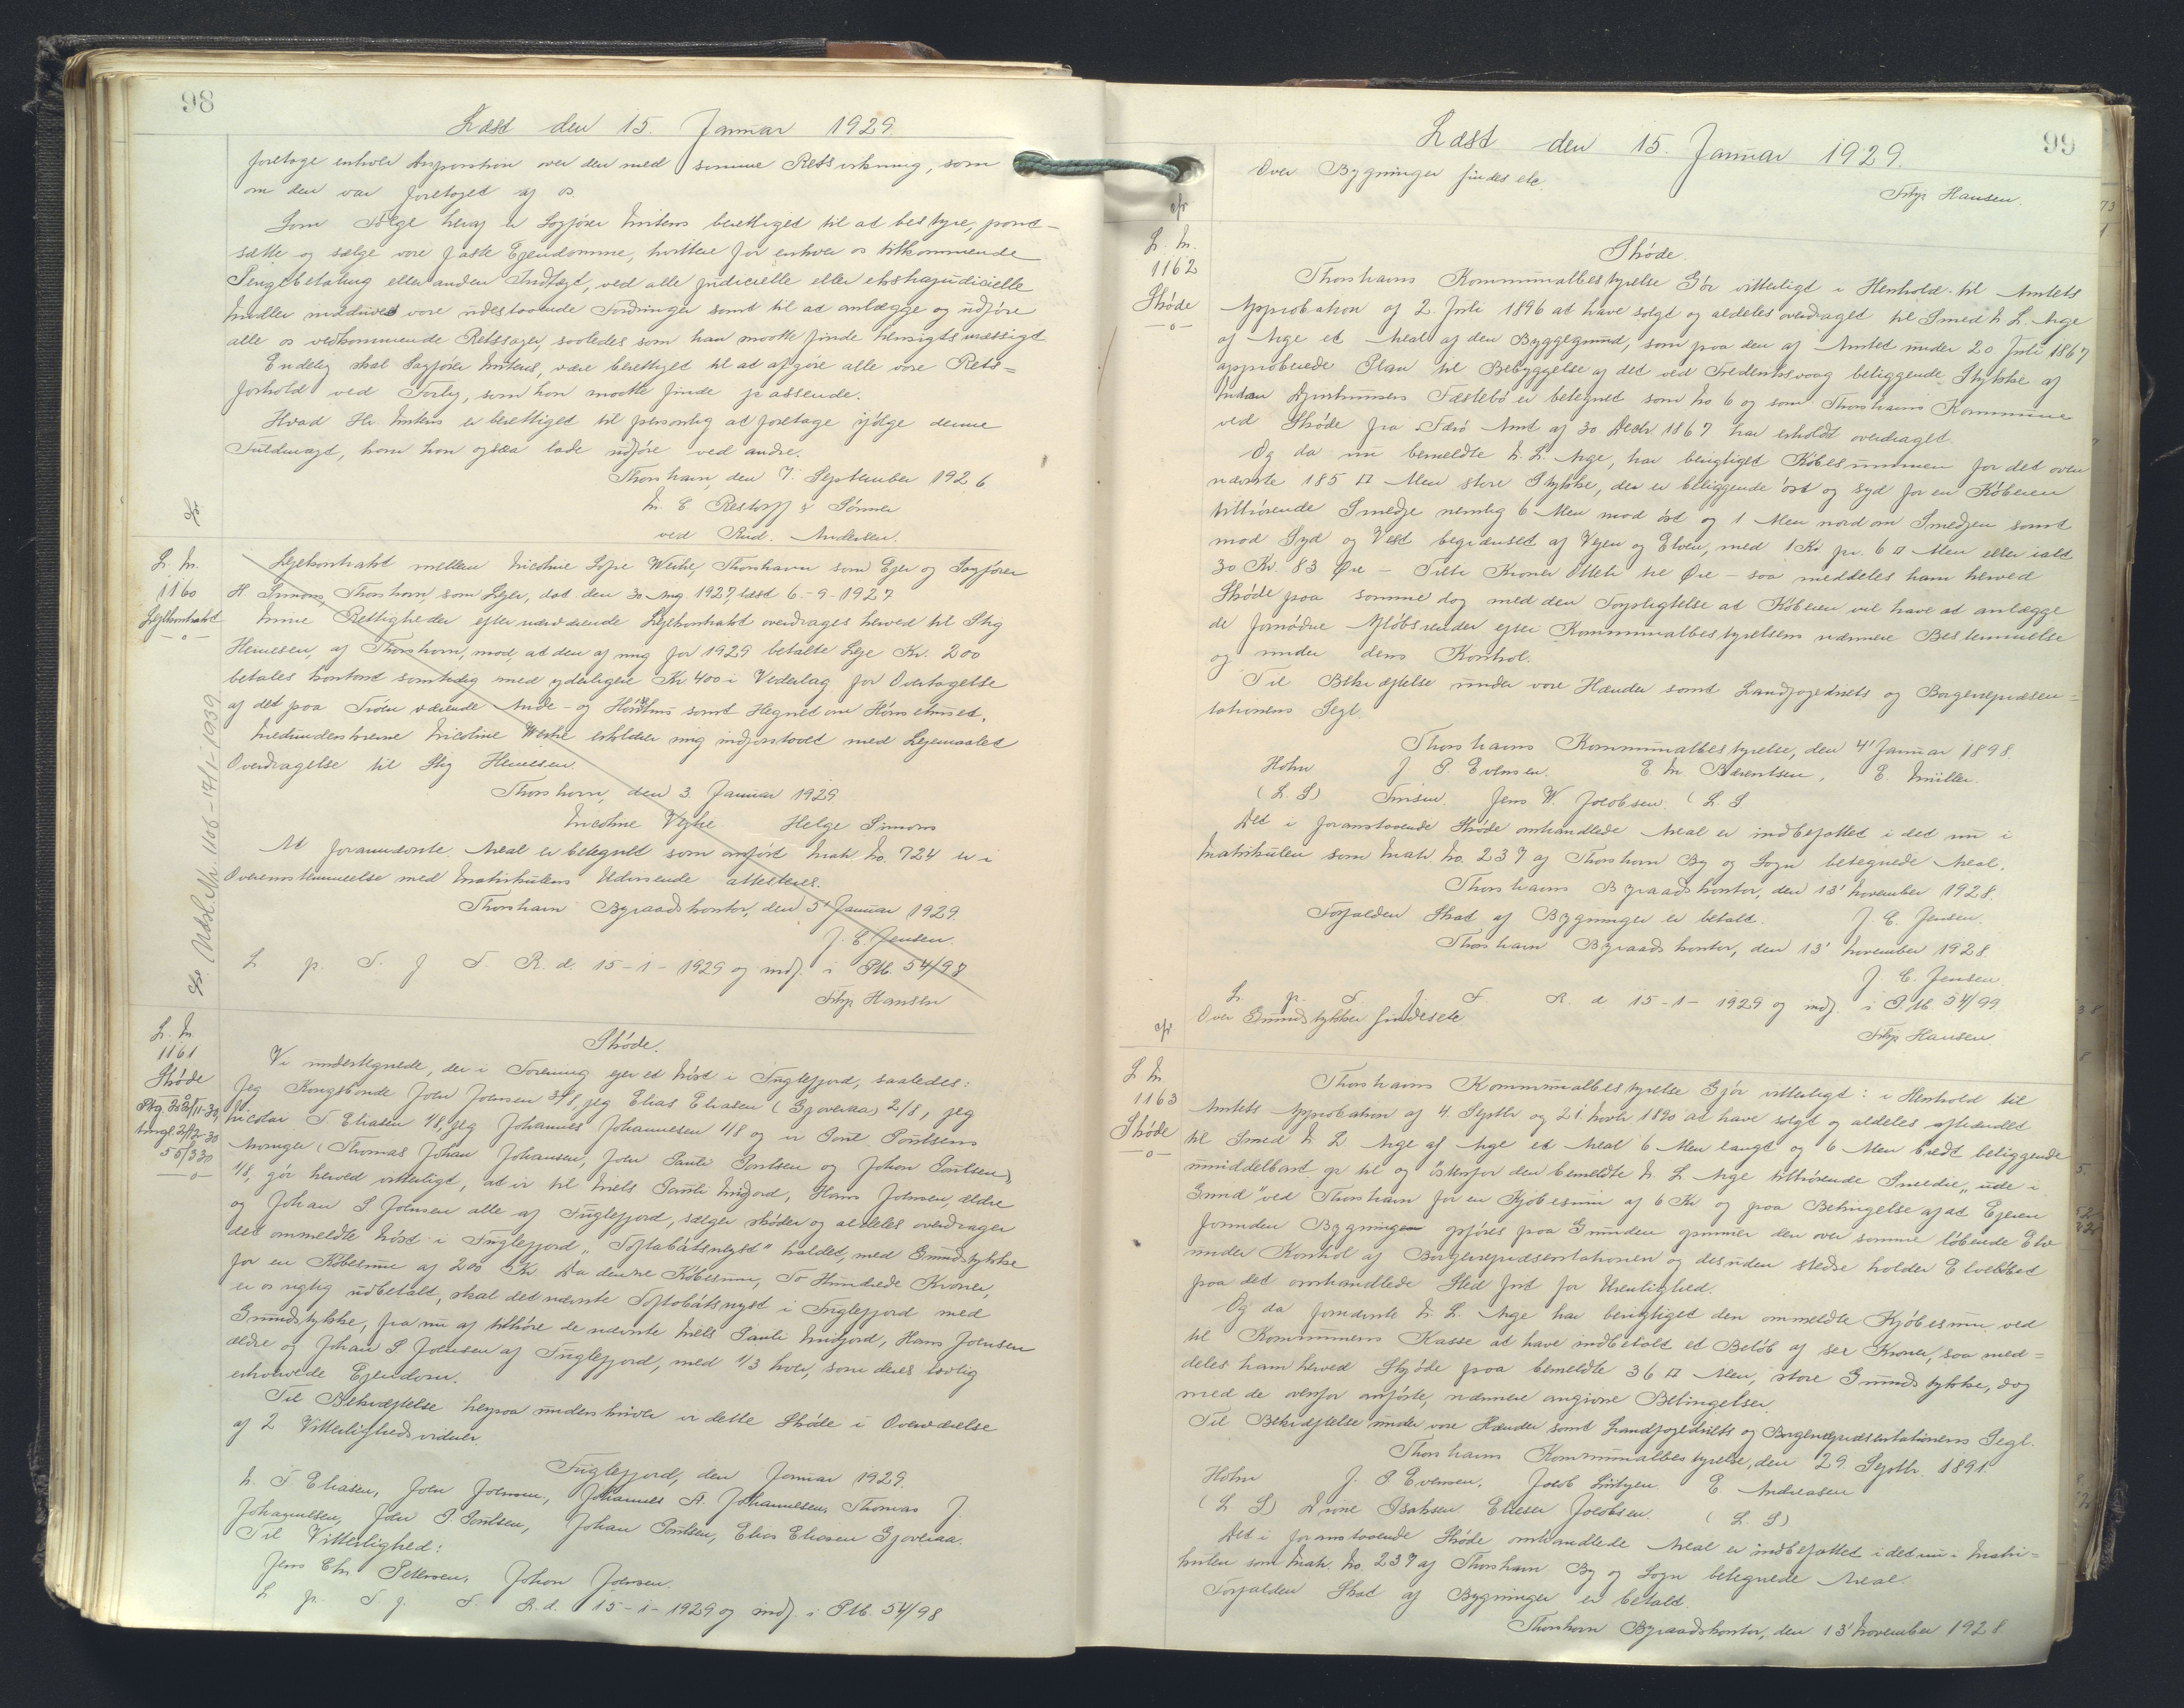 98
Læst den 15. Januar 1929.
foretage enhver Disposition over den med samme Retsvirkning, som
om den var foretaget af os.
Som Følge heraf er Sagfører Mitens berettiget til at bestyre, pant-
sætte og sælge vore faste Ejendomme, kvittere for enhver os tilkommende
Pengebetaling eller anden Indtægt, ved alle judicielle eller ekstrajudicielle
Midler inddrive vore udestaaende Fordringer samt til at anlægge og udføre
alle os vedkommende Retssager, saaledes som han maatte finde hensigtsmæssigt
Endelig skal Sagfører Mitens, være berettiget til at afgøre alle vore Rets=
forhold ved Forlig, som han maatte finde passende.
Hvad Hr. Mitens er berettiget til personlig at foretage ifølge denne
Fuldmagt, kan han ogsaa lade udføre ved andre.
Thorshavn, den 7. September 1926
M. C. Restorff & Sønner
ved Rud. Andersen.
L. Nr.
1160
Lejekontrakt
—o—
Lejekontrakt mellem Nicoline Sofie Weihe, Thorshavn som Ejer og Sagfører
H Simons, Thorshavn, som Lejer, dat den 30 Aug 1927, læst 6.-9-1927
Mine Rettigheder efter nærværende Lejekontrakt overdrages herved til Stig
Heinesen, af Thorshavn, mod, at den af mig for 1929 betalte Leje Kr. 200
betales kontant samtidig med yderligere Kr 400 i Vederlag for Overtagelse
af det paa Traden værende Ande- og Hønsehus samt Hegnet om Hønsehuset.
Medunderskrevne Nicoline Weihe erklærer mig indforstaaet med Lejemaalets
Overdragelse til Stig Heinesen.
Thorshavn, den 3. Januar 1929
Nicoline Vejhe. Helge Simons
At forannævnte Areal er betegnet som anført Matr. No. 724 er i
Overensstemmelse med Matrikulens Udvisende attesteres.
Thorshavn Byraadskontor, den 5' Januar 1929.
J. C. Jensen.
L p. T. f F. R. d. 15-1-1929 og indf. i Ptb. 54/98
Filip Hansen
Udsl. Nr. 1106 – 17/1-1939
L. Nr.
1161
Skøde
—o—
Skøde.
Vi undertegnede, der i Forening ejer et Nøst i Fuglefjord, saaledes:
Jeg Kongsbonde Joen Joensen 3/8, jeg Elias Eliasen (Gjoveraa) 2/8, jeg
Nicolai T. Eliasen 1/8, jeg Johannes Johannesen 1/8 og vi Poul Poulsens
Arvinger (Thomas Johan Johansen, Joen Pauli Poulsen og Johan Poulsen)
1/8, gør herved vitterligt, at vi til Niels Pauli Midjord, Hans Joensen, ældre
og Johan S Joensen alle af Fuglefjord, sælger skøder og aldeles overdrager
det ommeldte Nøst i Fuglefjord „Toftabátsneyst" kaldet, med Grundstykke
for en Købesum af 200 Kr. Da denne Købesum, To Hundrede Kroner,
er os rigtig udbetalt, skal det nævnte Toftabátsneyst i Fuglefjord med
Grundstykke, fra nu af tilhøre de nævnte Niels Pauli Midjord, Hans Joensen
ældre og Johan S. Joensen af Fuglefjord, med 1/3 hver, som deres lovlig
erhvervede Ejendom.
Til Bekræftelse herpaa underskriver vi dette Skøde i Overværelse
af 2 Vitterlighedsvidner.
Fuglefjord, den Januar 1929.
N. T Eliasen, Joen Joensen, Johannes A. Johannesen, Thomas J.
Johannesen, Joen P. Poulsen, Johan Poulsen, Elias Eliasen Gjoveraa.
Til Vitterlighed:
Jens Chr. Petersen, Johan Joensen.
L p. T f. F. R. d. 15-1-1929 og indf. i Ptb. 54/98
99
Læst den 15. Januar 1929.
Over Bygninger findes etc.
Filip Hansen.
L. Nr.
1162
Skøde
—o—
Skøde.
Thorshavns Kommunalbestyrelse Gør vitterligt i Henhold til Amtets
Approbation af 2. Juli 1896 at have solgt og aldeles overdraget til Smed N. L. Arge
af Arge et Areal af den Byggegrund, som paa den af Amtet under 20 Juli 1867
approberede Plan til Bebyggelse af det ved Fredenksvaag beliggende Stykke af
Fæstebø er betegnet som No 6 og som Thorshavns Kommune
ved Skøde fra Færø Amt af 30 Decbr 1867 har erholdt overdraget.
Og da nu bemeldte N. L. Arge, har berigtiget Købesummen for det oven
nævnte 185 □ Alen store Stykke, der er beliggende øst og syd for en Køberen
tilhørende Smedje nemlig 6 Alen mod øst og 1 Alen nord om Smedjen samt
mod Syd og Vest begrænset af Vejen og Elven, med 1 Kr pr. 6 □ Alen eller ialt
30 Kr. 83 Øre – Tredive Kroner Otteti tre Øre – saa meddeles ham herved
Skøde paa samme dog med den Forpligtelse at Køberen vil have at anlægge
de fornødne Afløbsrender efter Kommunalbestyrelsens nærmere Bestemmelse
og under dens Kontrol.
Til Bekræftelse under vore Hænder samt Landfogedriets og Borgerrepræsen=
tationens Segl.
Thorshavns Kommunalbestyrelse, den 4' Januar 1898.
Hohn J P. Evensen. E. M Bærentsen, E. Müller.
(L. S) Jens W. Jacobsen. (L S
Det i foranstaaende Skøde omhandlede Areal er indbefattet i det nu i
Matrikulen som Matr. No. 237 af Thorshavn By og Sogn betegnede Areal.
Thorshavns Byraadskontor, den 13' November 1928.
Forfalden Skat af Bygninger er betalt. J. C. Jensen.
Thorshavn Byraadskontor, den 13' November 1928.
J. C. Jensen
L. p. T. f. F. R. d 15-1-1929 og indf. i Ptb. 54/99
Over Grundstykker findes etc
Filip Hansen.
L Nr.
1163
Skøde
—o—
Thorshavns Kommunalbestyrelse Gjør vitterligt: i Henhold til
Amtets Approbation af 4. Septbr og 21 Novbr 1890 at have solgt og aldeles afhændet
til Smed N L Arge af Arge et Areal 6 Alen langt og 6 Alen bredt beliggende
umiddelbart op til og østenfor den bemeldte N. L Arge tilhørende Smedie „ude i
Grind" ved Thorshavn for en Kjøbesum af 6 Kr og paa Betingelse af at Ejeren
forinden Bygningen opføres paa Grunden opmurer den over samme løbende Elv
under Kontrol af Borgerrepræsentationen og desuden stedse holder Elveløbet
paa det omhandlede Sted frit for Urenlighed.
Og da fornævnte N. L. Arge har berigtiget den ommeldte Kjøbesum ved
til Kommunens Kasse at have indbetalt et Beløb af sex Kroner, saa med=
deles ham herved Skjøde paa bemeldte 36 □ Alen, store Grundstykke, dog
med de ovenfor anførte, nærmere angivne Betingelser.
Til Bekræftelse under vore Hænder samt Landfogedriets og Borgerrepræsentationens Segl.
Thorshavns Kommunalbestyrelse, den 29. Septbr. 1891.
Hohn J. P. Evensen, Jacob Lützen. E. Andreasen
(L. S) Isaksen Elieser Jacobsen. (L. S)
Det i foranstaaende Skøde omhandlede Areal er indbefattet i det nu i Matri=
kulen som Matr. No. 237 af Thorshavn By og Sogn betegnede Areal.
Forfalden Skat af Bygninger er betalt.
Thorshavn Byraadskontor, den 13' November 1928